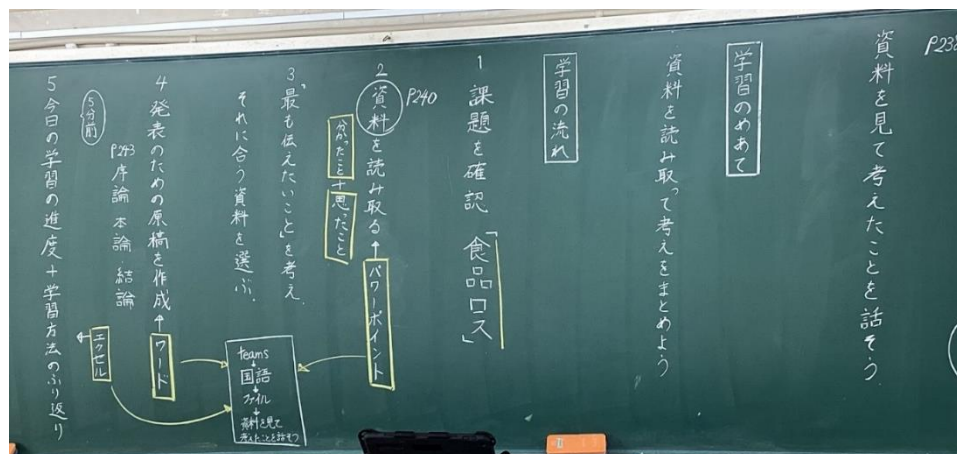 P238
資料を見て考えたことを話そう
学習のめあて
資料を読み取って考えをまとめよう
学習の流れ
1 課題を確認 「食品ロス」
P240
2 資料を読み取る ← パワーポイント
分かったこと + 思ったこと
3 「最も伝えたいこと」を考え、
それに合う資料を選ぶ。
4 発表のための原稿を作成 ← ワード
P243 序論 本論 結論
5分前
エクセル
5 今日の学習の進度 + 学習方法のふり返り
teams
国語
ファイル
資料を見て
考えたことを話そう